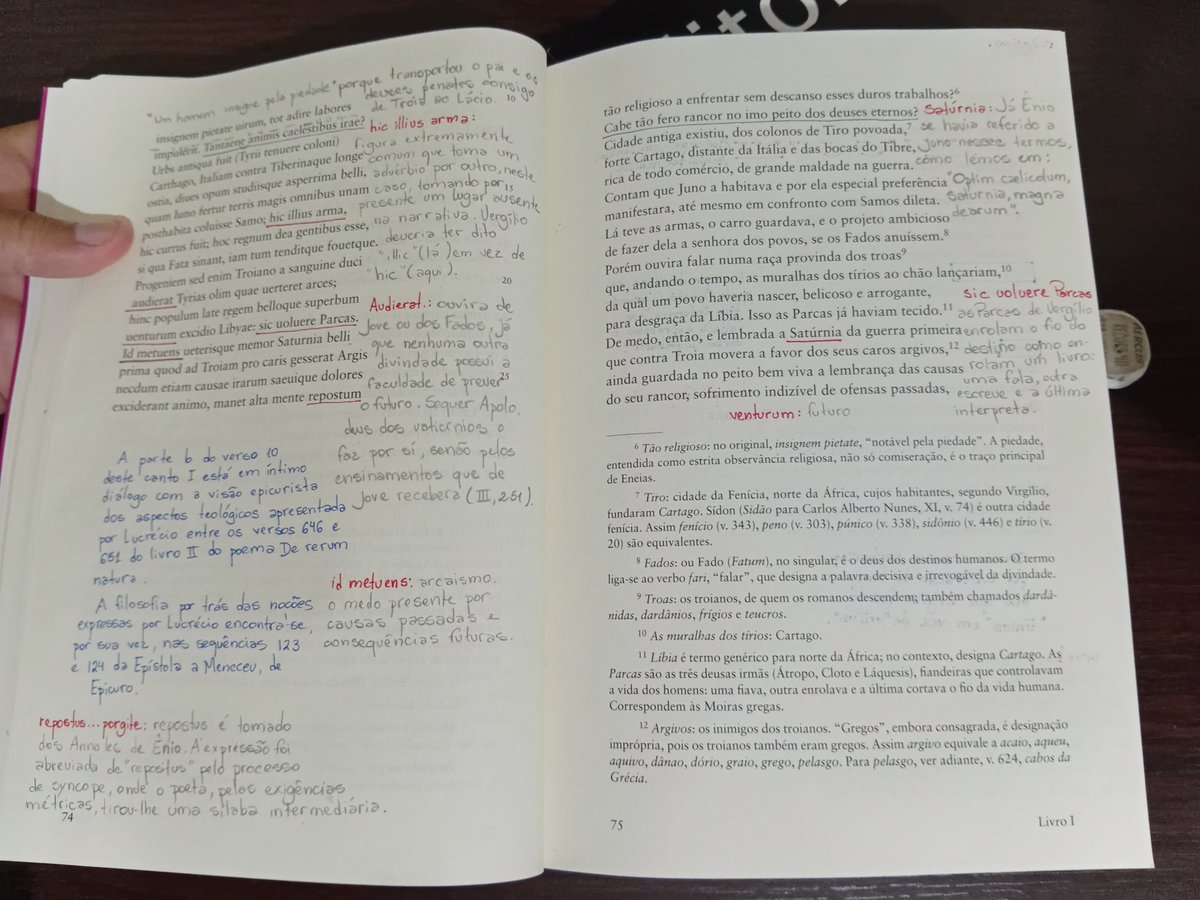 "Um homem insigne pela piedade" porque transportou o pai e os
deuses penates consigo
de Troia ao Lácio.
insignem pietate uirum, tot adire labores 10
impulerit. Tantaene animis caelestibus irae?
Urbs antiqua fuit (Tyrii tenuere coloni)
Carthago, Italiam contra Tiberinaque longe
ostia, diues opum studiisque asperrima belli,
quam Iuno fertur terris magis omnibus unam 15
posthabita coluisse Samo; hic illius arma,
hic currus fuit; hoc regnum dea gentibus esse,
si qua Fata sinant, iam tum tenditque fouetque.
Progeniem sed enim Troiano a sanguine duci
audierat Tyrias olim quae uerteret arces; 20
hinc populum late regem belloque superbum
uenturum excidio Libyae: sic uoluere Parcas.
Id metuens ueterisque memor Saturnia belli
prima quod ad Troiam pro caris gesserat Argis
necdum etiam causae irarum saeuique dolores 25
exciderant animo, manet alta mente repostum
hic illius arma:
Figura extremamente
comum que toma um
advérbio por outro, neste
caso, tomando por
presente um lugar ausente
na narrativa. Vergílio
deveria ter dito
"illic" (lá) em vez de
"hic" (aqui).
Audierat.: ouvira de
Jove ou dos Fados, já
que nenhuma outra
divindade possui a
faculdade de prever
o futuro. Sequer Apolo,
deus dos vaticínios o
faz por si, senão pelos
ensinamentos que de
Jove recebera (III, 251).
A parte b do verso 10
deste canto I está em íntimo
diálogo com a visão epicurista
dos aspectos teológicos apresentada
por Lucrécio entre os versos 646 e
651 do livro II do poema De rerum
natura.
A filosofia por trás das nocões
expressas por Lucrécio encontra-se,
por sua vez, nas sequências 123
e 124 da Epístola a Meneceu, de
Epicuro.
id metuens: arcaísmo.
o medo presente por
causas passadas e
consequências futuras.
repostus...porgite: repostus é tomado
dos Annales de Ênio. A expressão foi
abreviada de "repositus" pelo processo
de syncope, onde o poeta, pelas exigências
métricas, tirou-lhe uma sílaba intermediária.
74
tão religioso a enfrentar sem descanso esses duros trabalhos?⁶
Cabe tão fero rancor no imo peito dos deuses eternos?
Cidade antiga existiu, dos colonos de Tiro povoada,⁷
forte Cartago, distante da Itália e das bocas do Tibre,
rica de todo comércio, de grande maldade na guerra.
Contam que Juno a habitava e por ela especial preferência
manifestara, até mesmo em confronto com Samos dileta.
Lá teve as armas, o carro guardava, e o projeto ambicioso
de fazer dela a senhora dos povos, se os Fados anuíssem.⁸
Porém ouvira falar numa raça provinda dos troas⁹
que, andando o tempo, as muralhas dos tírios ao chão lançariam,¹⁰
da qual um povo haveria nascer, belicoso e arrogante,
para desgraça da Líbia. Isso as Parcas já haviam tecido.¹¹
De medo, então, e lembrada a Satúrnia da guerra primeira
que contra Troia movera a favor dos seus caros argivos,¹²
ainda guardada no peito bem viva a lembrança das causas
do seu rancor, sofrimento indizível de ofensas passadas,
Satúrnia: Já Ênio
se havia referido a
Juno nesses termos,
como lemos em:
"Optim cælicolum,
Saturnia, magna
dearum".
sic uoluere Parcas
as Parcas de Vergílio
enrolam o fio do
destino como en-
rolam, um livro:
uma fala, outra
escreve e a última
interpreta.
venturum: futuro
⁶ Tão religioso: no original, insignem pietate, "notável pela piedade". A piedade,
entendida como estrita observância religiosa, não só comiseração, é o traço principal
de Eneias.
⁷ Tiro: cidade da Fenícia, norte da África, cujos habitantes, segundo Virgílio,
fundaram Cartago. Sídon (Sidão para Carlos Alberto Nunes, XI, v. 74) é outra cidade
fenícia. Assim fenício (v. 343), peno (v. 303), púnico (v. 338), sidônio (v. 446) e tírio (v.
20) são equivalentes.
⁸ Fados: ou Fado (Fatum), no singular, é o deus dos destinos humanos. O termo
liga-se ao verbo fari, "falar", que designa a palavra decisiva e irrevogável da divindade.
⁹ Troas: os troianos, de quem os romanos descendem; também chamados dardâ-
nidas, dardânios, frígios e teucros.
¹⁰ As muralhas dos tírios: Cartago.
¹¹ Líbia é termo genérico para norte da África; no contexto, designa Cartago. As
Parcas são as três deusas irmãs (Átropo, Cloto e Láquesis), fiandeiras que controlavam
a vida dos homens: uma fiava, outra enrolava e a última cortava o fio da vida humana.
Correspondem às Moiras gregas.
¹² Argivos: os inimigos dos troianos. "Gregos", embora consagrada, é designação
imprópria, pois os troianos também eram gregos. Assim argivo equivale a acaio, aqueu,
aquivo, dânao, dório, graio, grego, pelasgo. Para pelasgo, ver adiante, v. 624, cabos da
Grécia.
75
Livro I